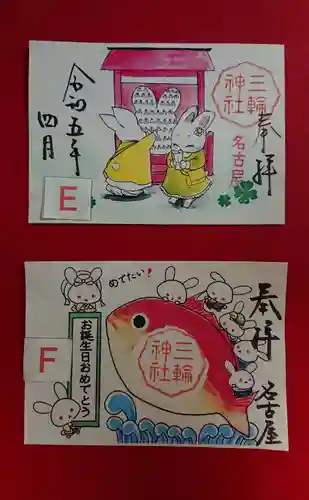 令和五年
四月
三輪
神社
奉拝
名古屋
E
めでたい!
お誕生日おめでとう
三輪
神社
奉拝
名古屋
F